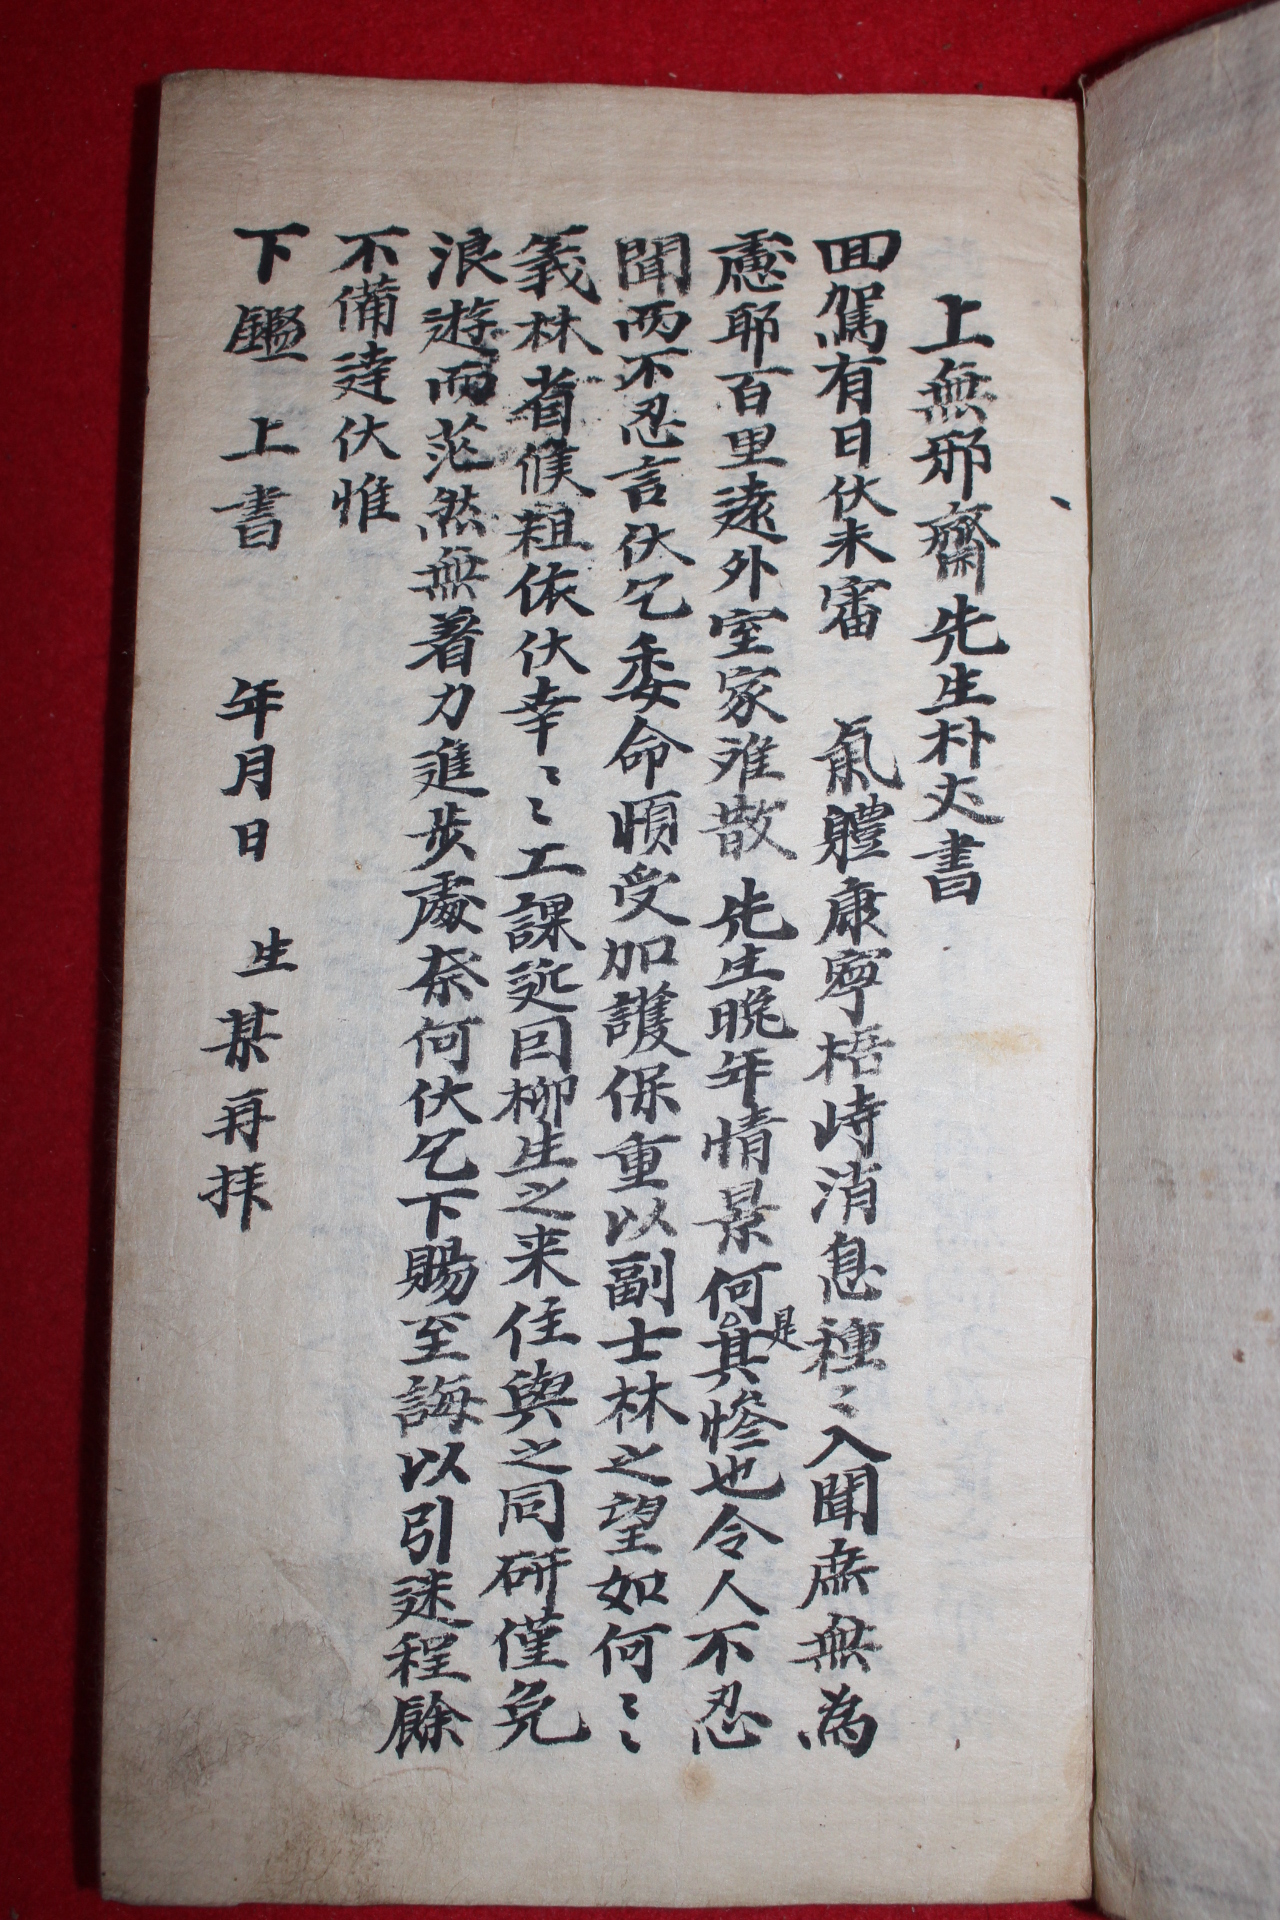 上無邪齋先生朴丈書
回駕有日伏未審 氣體康寧梧峙消息種〻入聞庶無為
慮耶百里遠外室家離散 先生晩年情景何是其慘也令人不忍
聞而不忍言伏乞委命順受加護保重以副士林之望如何〻〻
義林省候粗依伏幸〻〻工課近因柳生之来住與之同硏僅免
浪遊而茫然無着力進步處奈何伏乞下賜至誨以引迷程餘
不備達伏惟
下鑑 上書 年月日 生某再拜